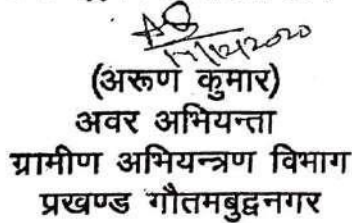 (अरूण कुमार)
अवर अभियन्ता
ग्रामीण अभियन्त्रण विभाग
प्रखण्ड गौतमबुद्वनगर